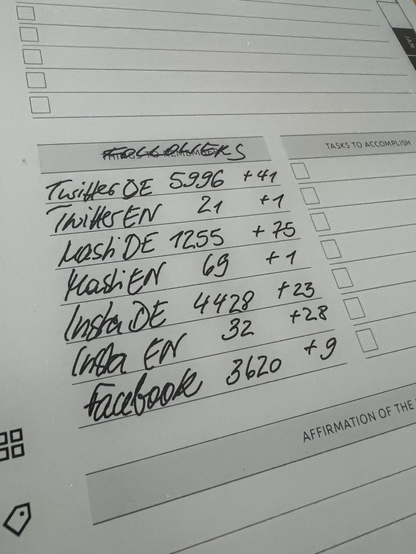 FOLLOWERS
TASKS TO ACCOMPLISH
Twitter DE 5996 +41
Twitter EN 21 +1
Masti DE 1255 +75
Masti EN 69 +1
Insta DE 4428 +23
Insta EN 32 +28
Facebook 3620 +9
AFFIRMATION OF THE